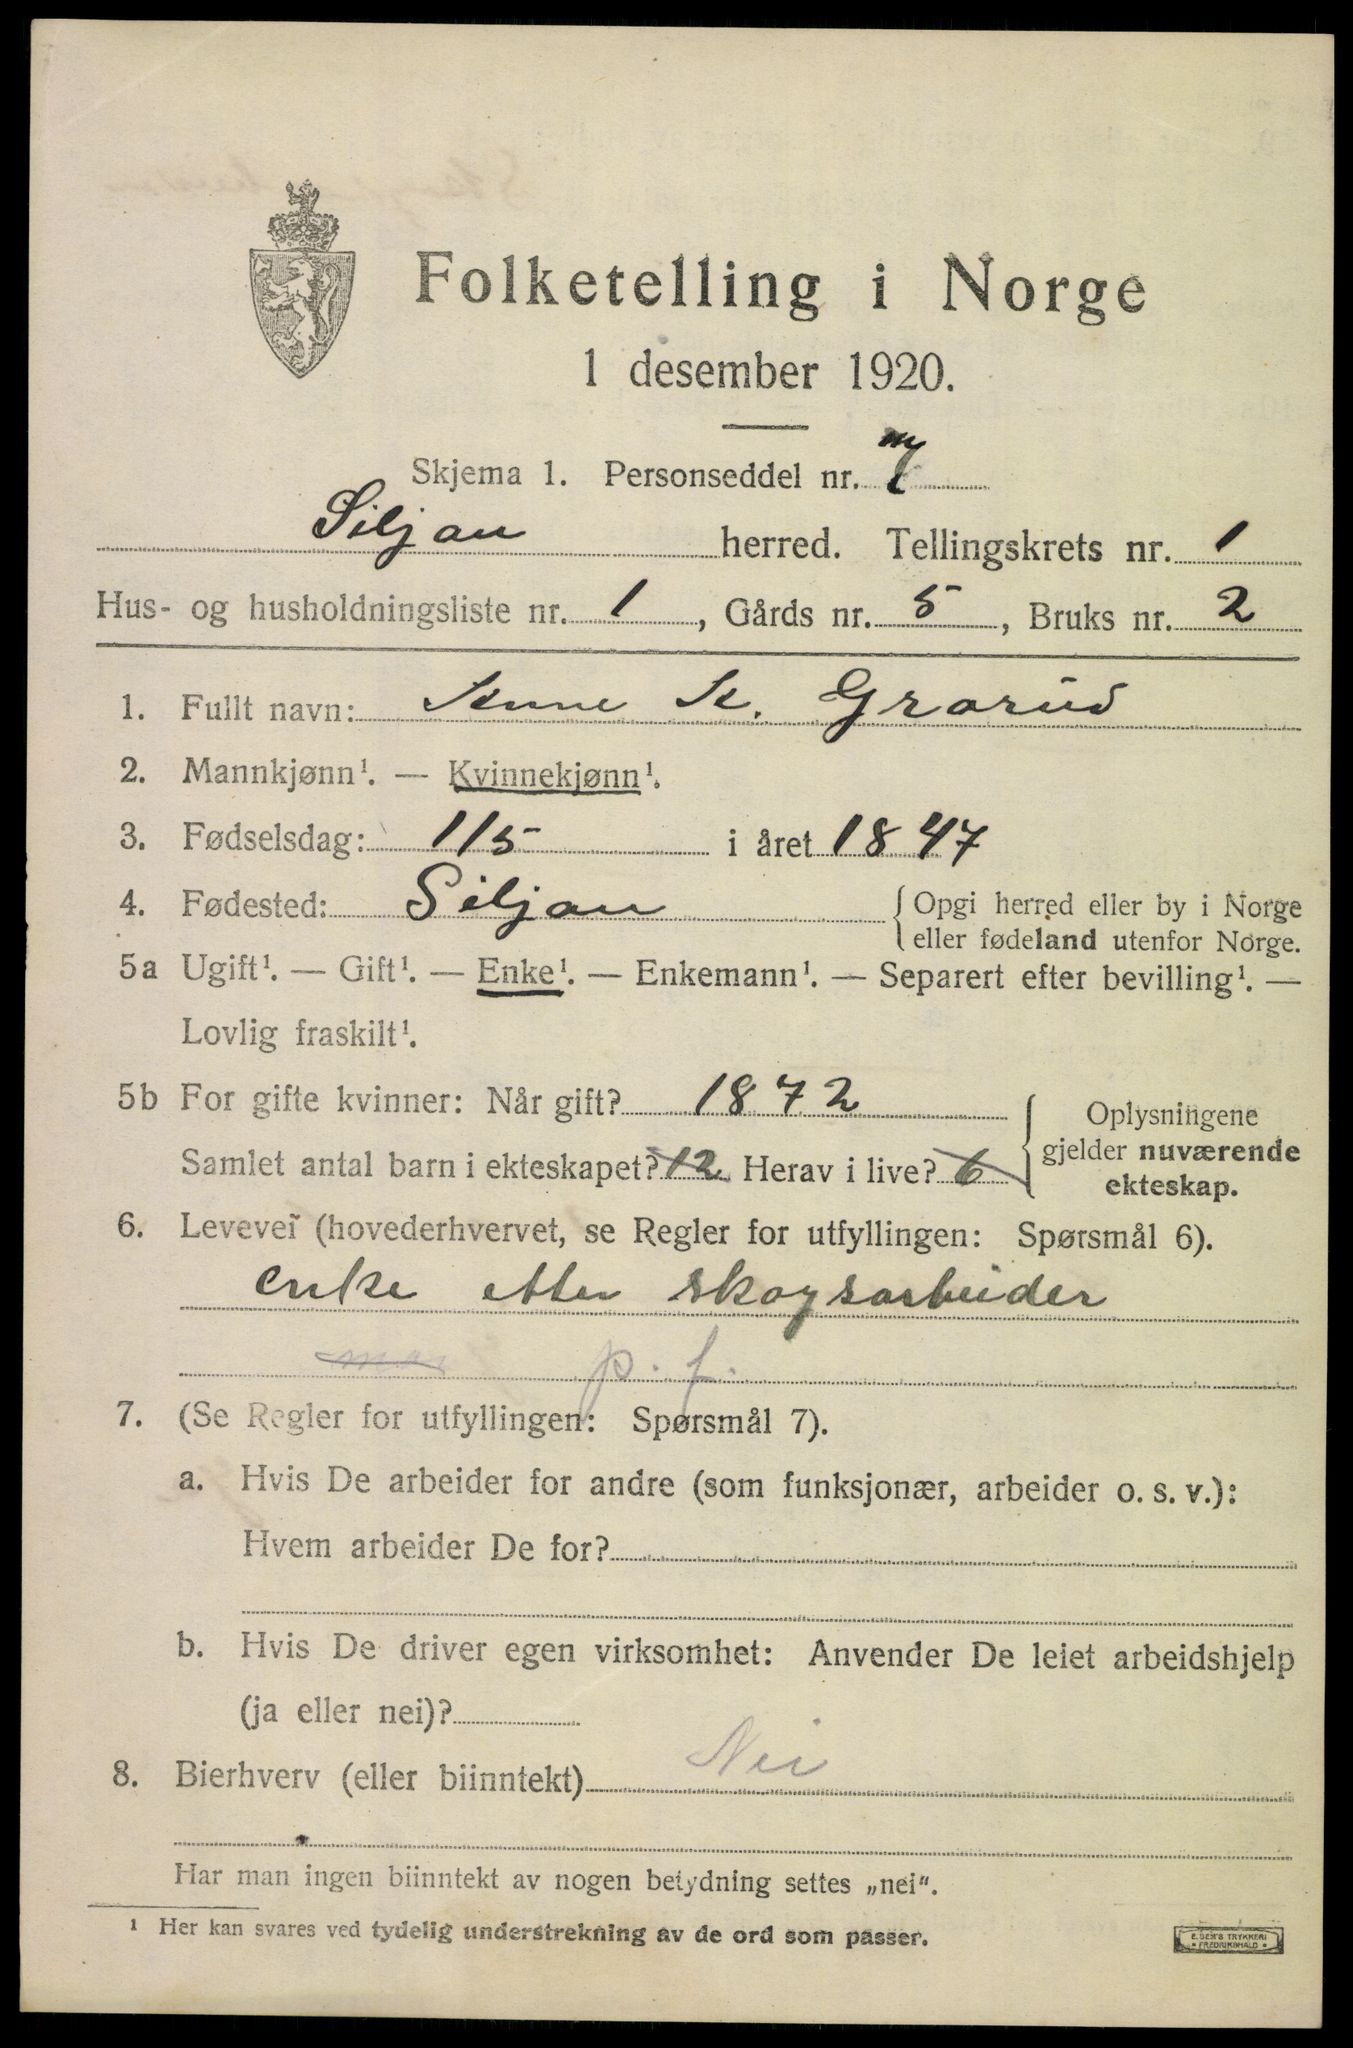 Folketelling i Norge
1 desember 1920.
Skjema 1. Personseddel nr. 7
Siljan herred. Tellingskrets nr. 1
Hus- og husholdningsliste nr. 1, Gårds nr. 5, Bruks nr. 2
1. Fullt navn: Anne K. Grorud
2. Mannkjønn¹. — Kvinnekjønn¹.
3. Fødselsdag: 1/5 i året 1847
4. Fødested: Siljan { Opgi herred eller by i Norge
eller fødeland utenfor Norge.
5a Ugift¹. — Gift¹. — Enke¹. — Enkemann¹. — Separert efter bevilling¹. —
Lovlig fraskilt¹.
5b For gifte kvinner: Når gift? 1872
Samlet antal barn i ekteskapet? 12 Herav i live? 6
{ Oplysningene
gjelder nuværende
ekteskap.
6. Levevei (hovederhvervet, se Regler for utfyllingen: Spørsmål 6).
enke etter skogsarbeider
p. f.
7. (Se Regler for utfyllingen: Spørsmål 7).
a. Hvis De arbeider for andre (som funksjonær, arbeider o. s. v.):
Hvem arbeider De for?
b. Hvis De driver egen virksomhet: Anvender De leiet arbeidshjelp
(ja eller nei)?
8. Bierhverv (eller biinntekt) Nei
Har man ingen biinntekt av nogen betydning settes „nei".
¹ Her kan svares ved tydelig understrekning av de ord som passer.
E. SEM'S TRYKKERI
FREDRIKSHALD